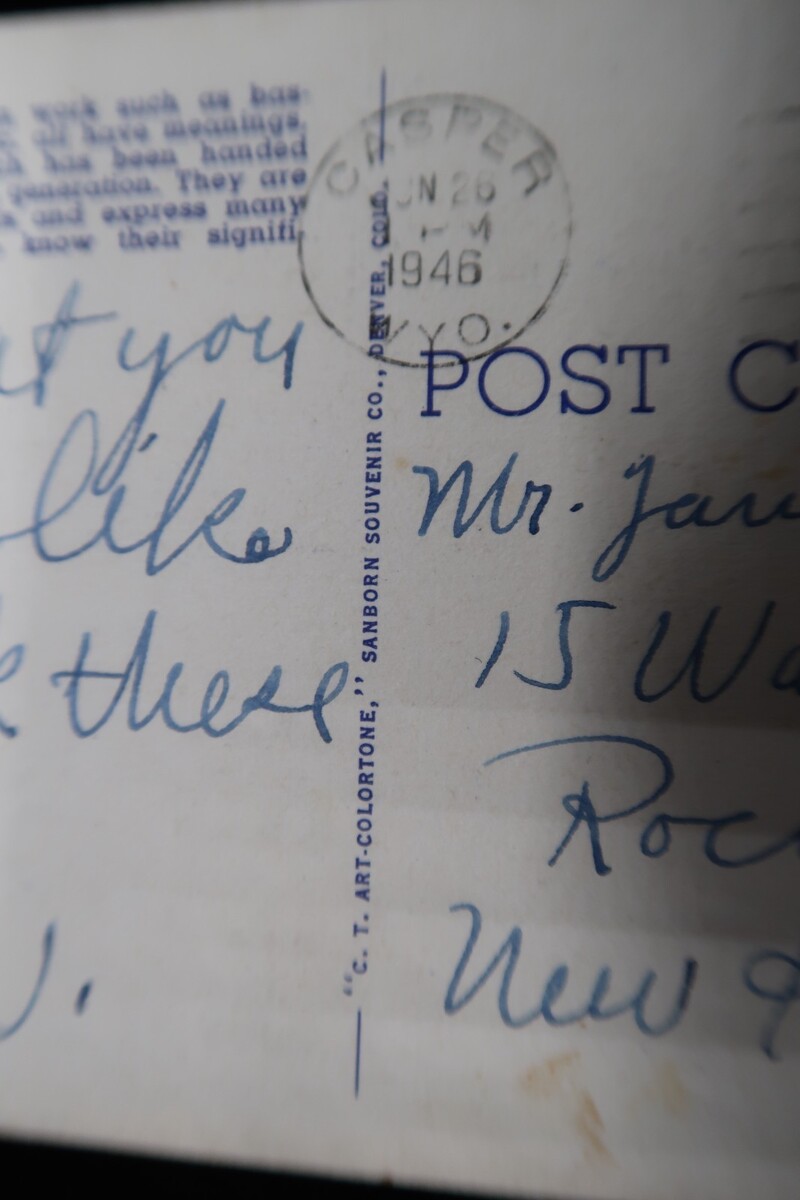 work such as bas-
all have meanings,
has been handed
generation. They are
and express many
know their signifi-
CASPER
JUN 26
1946
WYO.
you
like
these
"C. T. ART-COLORTONE," SANBORN SOUVENIR CO., DENVER, COLO.
POST C
Mr. Jam
15 Wa
Roc
New Y